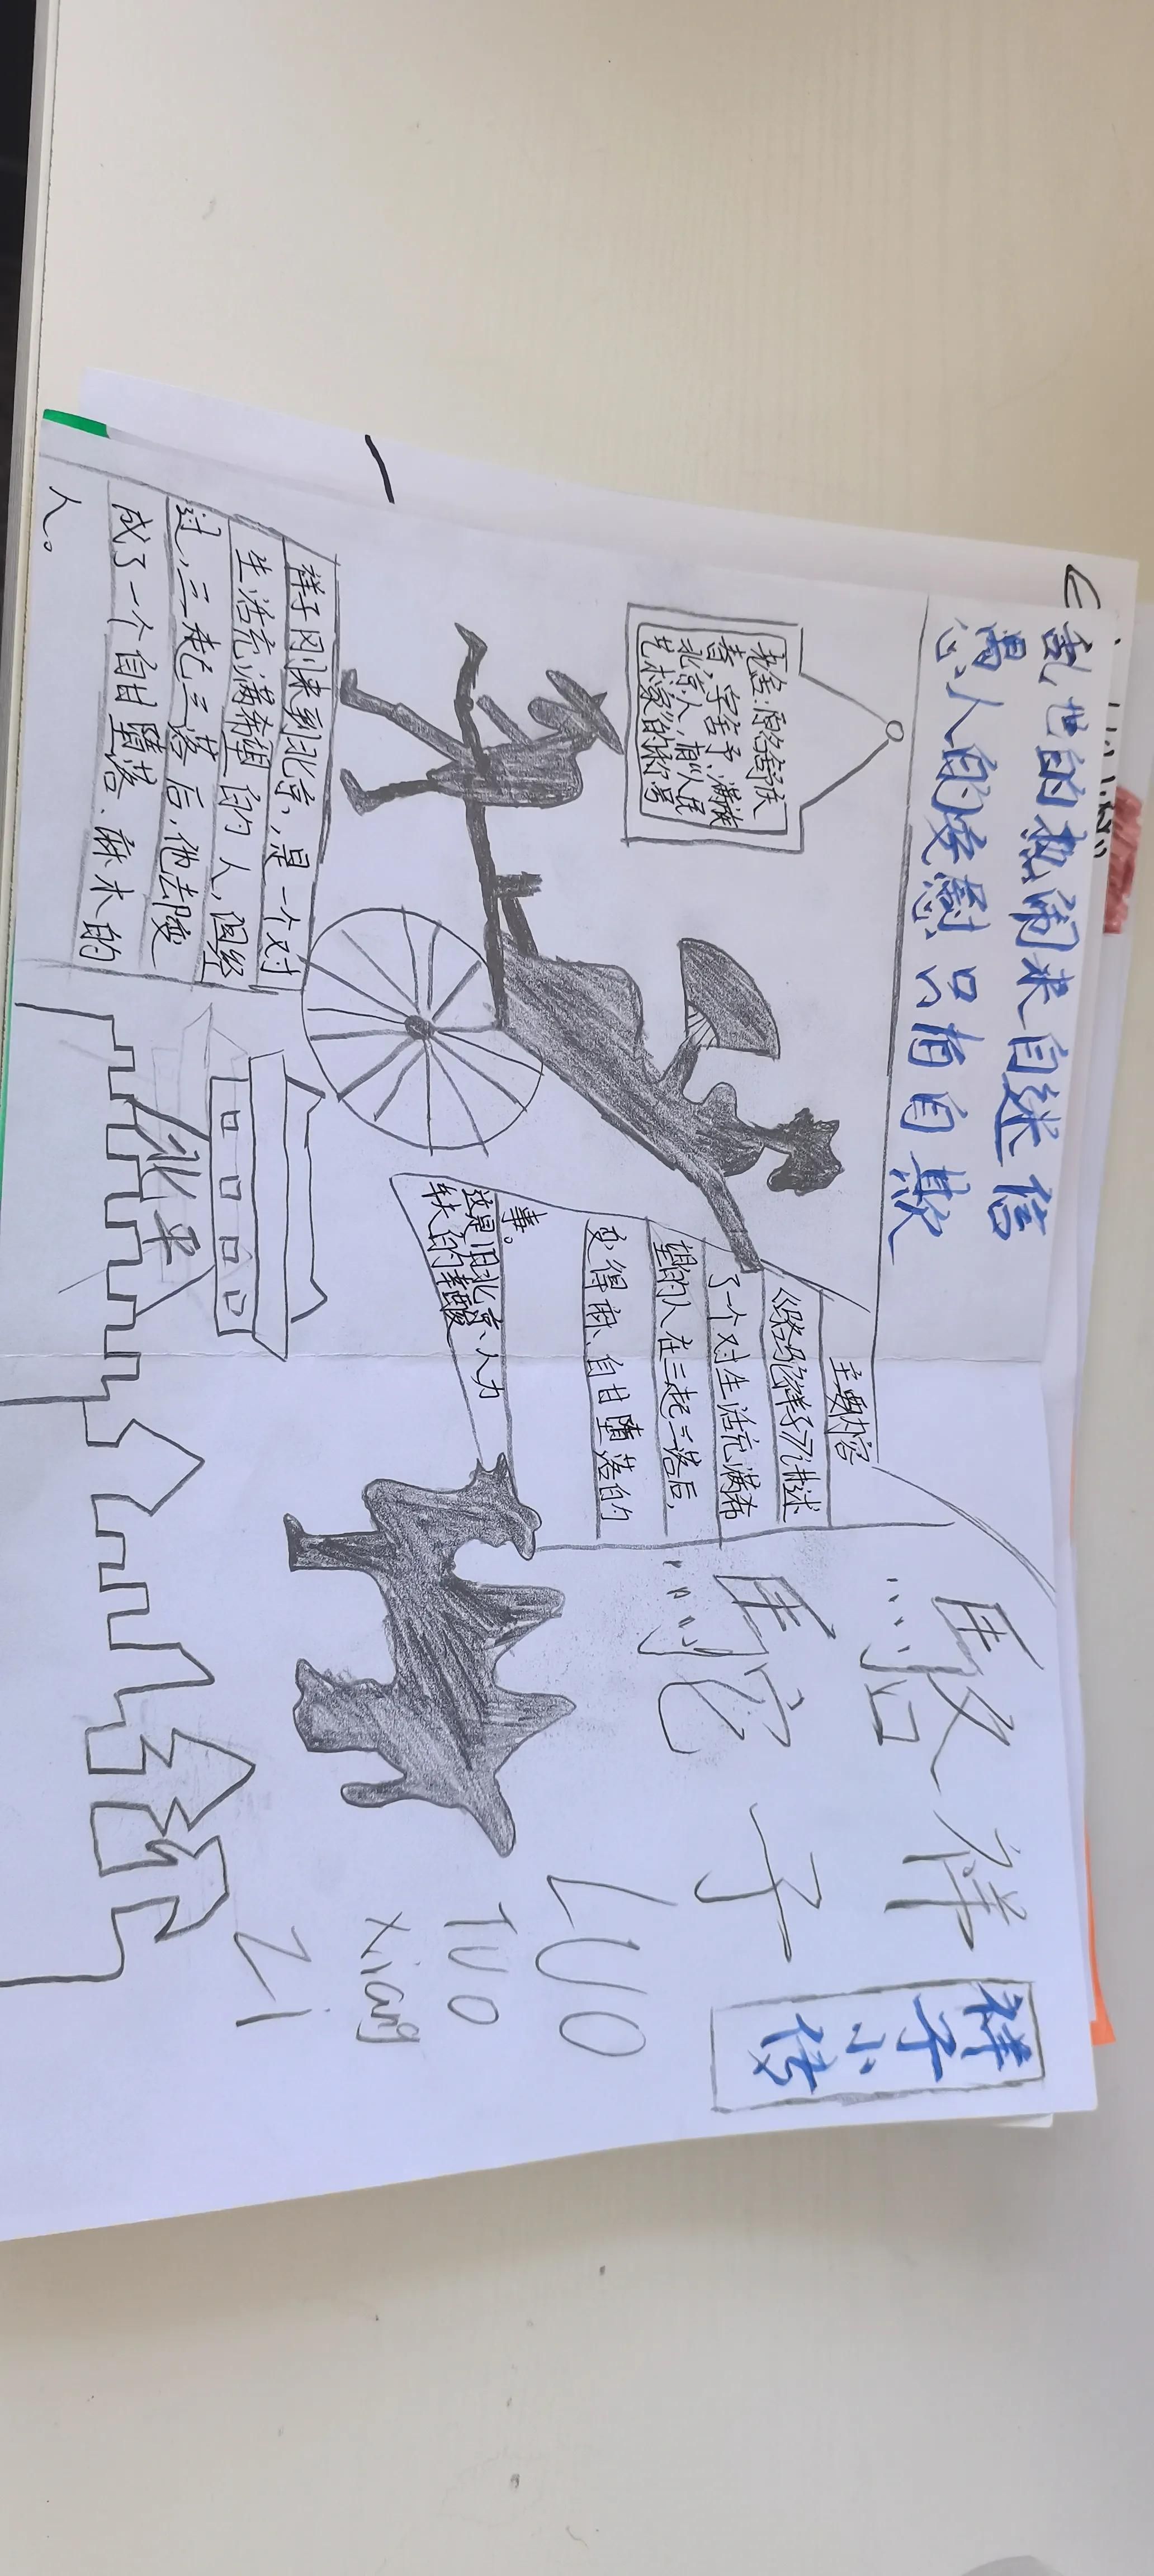 乱世的热闹来自迷信
愚人的安慰只有自欺
老舍:原名舒庆
春,字舍予,满族
北京人,有"人民
艺术家"的称号
祥子刚来到北京,是一个对
生活充满希望的人,但经
过三起三落后,他去变
成了一个自甘堕落、麻木的
人。
主要内容
《骆驼祥子》讲述
了一个对生活充满希
望的人在三起三落后,
变得麻、自甘堕落的
事。
这是旧北京、人力
车夫的辛酸
北平
骆驼
祥子
LUO
TUO
xiang
Zi
祥子小传